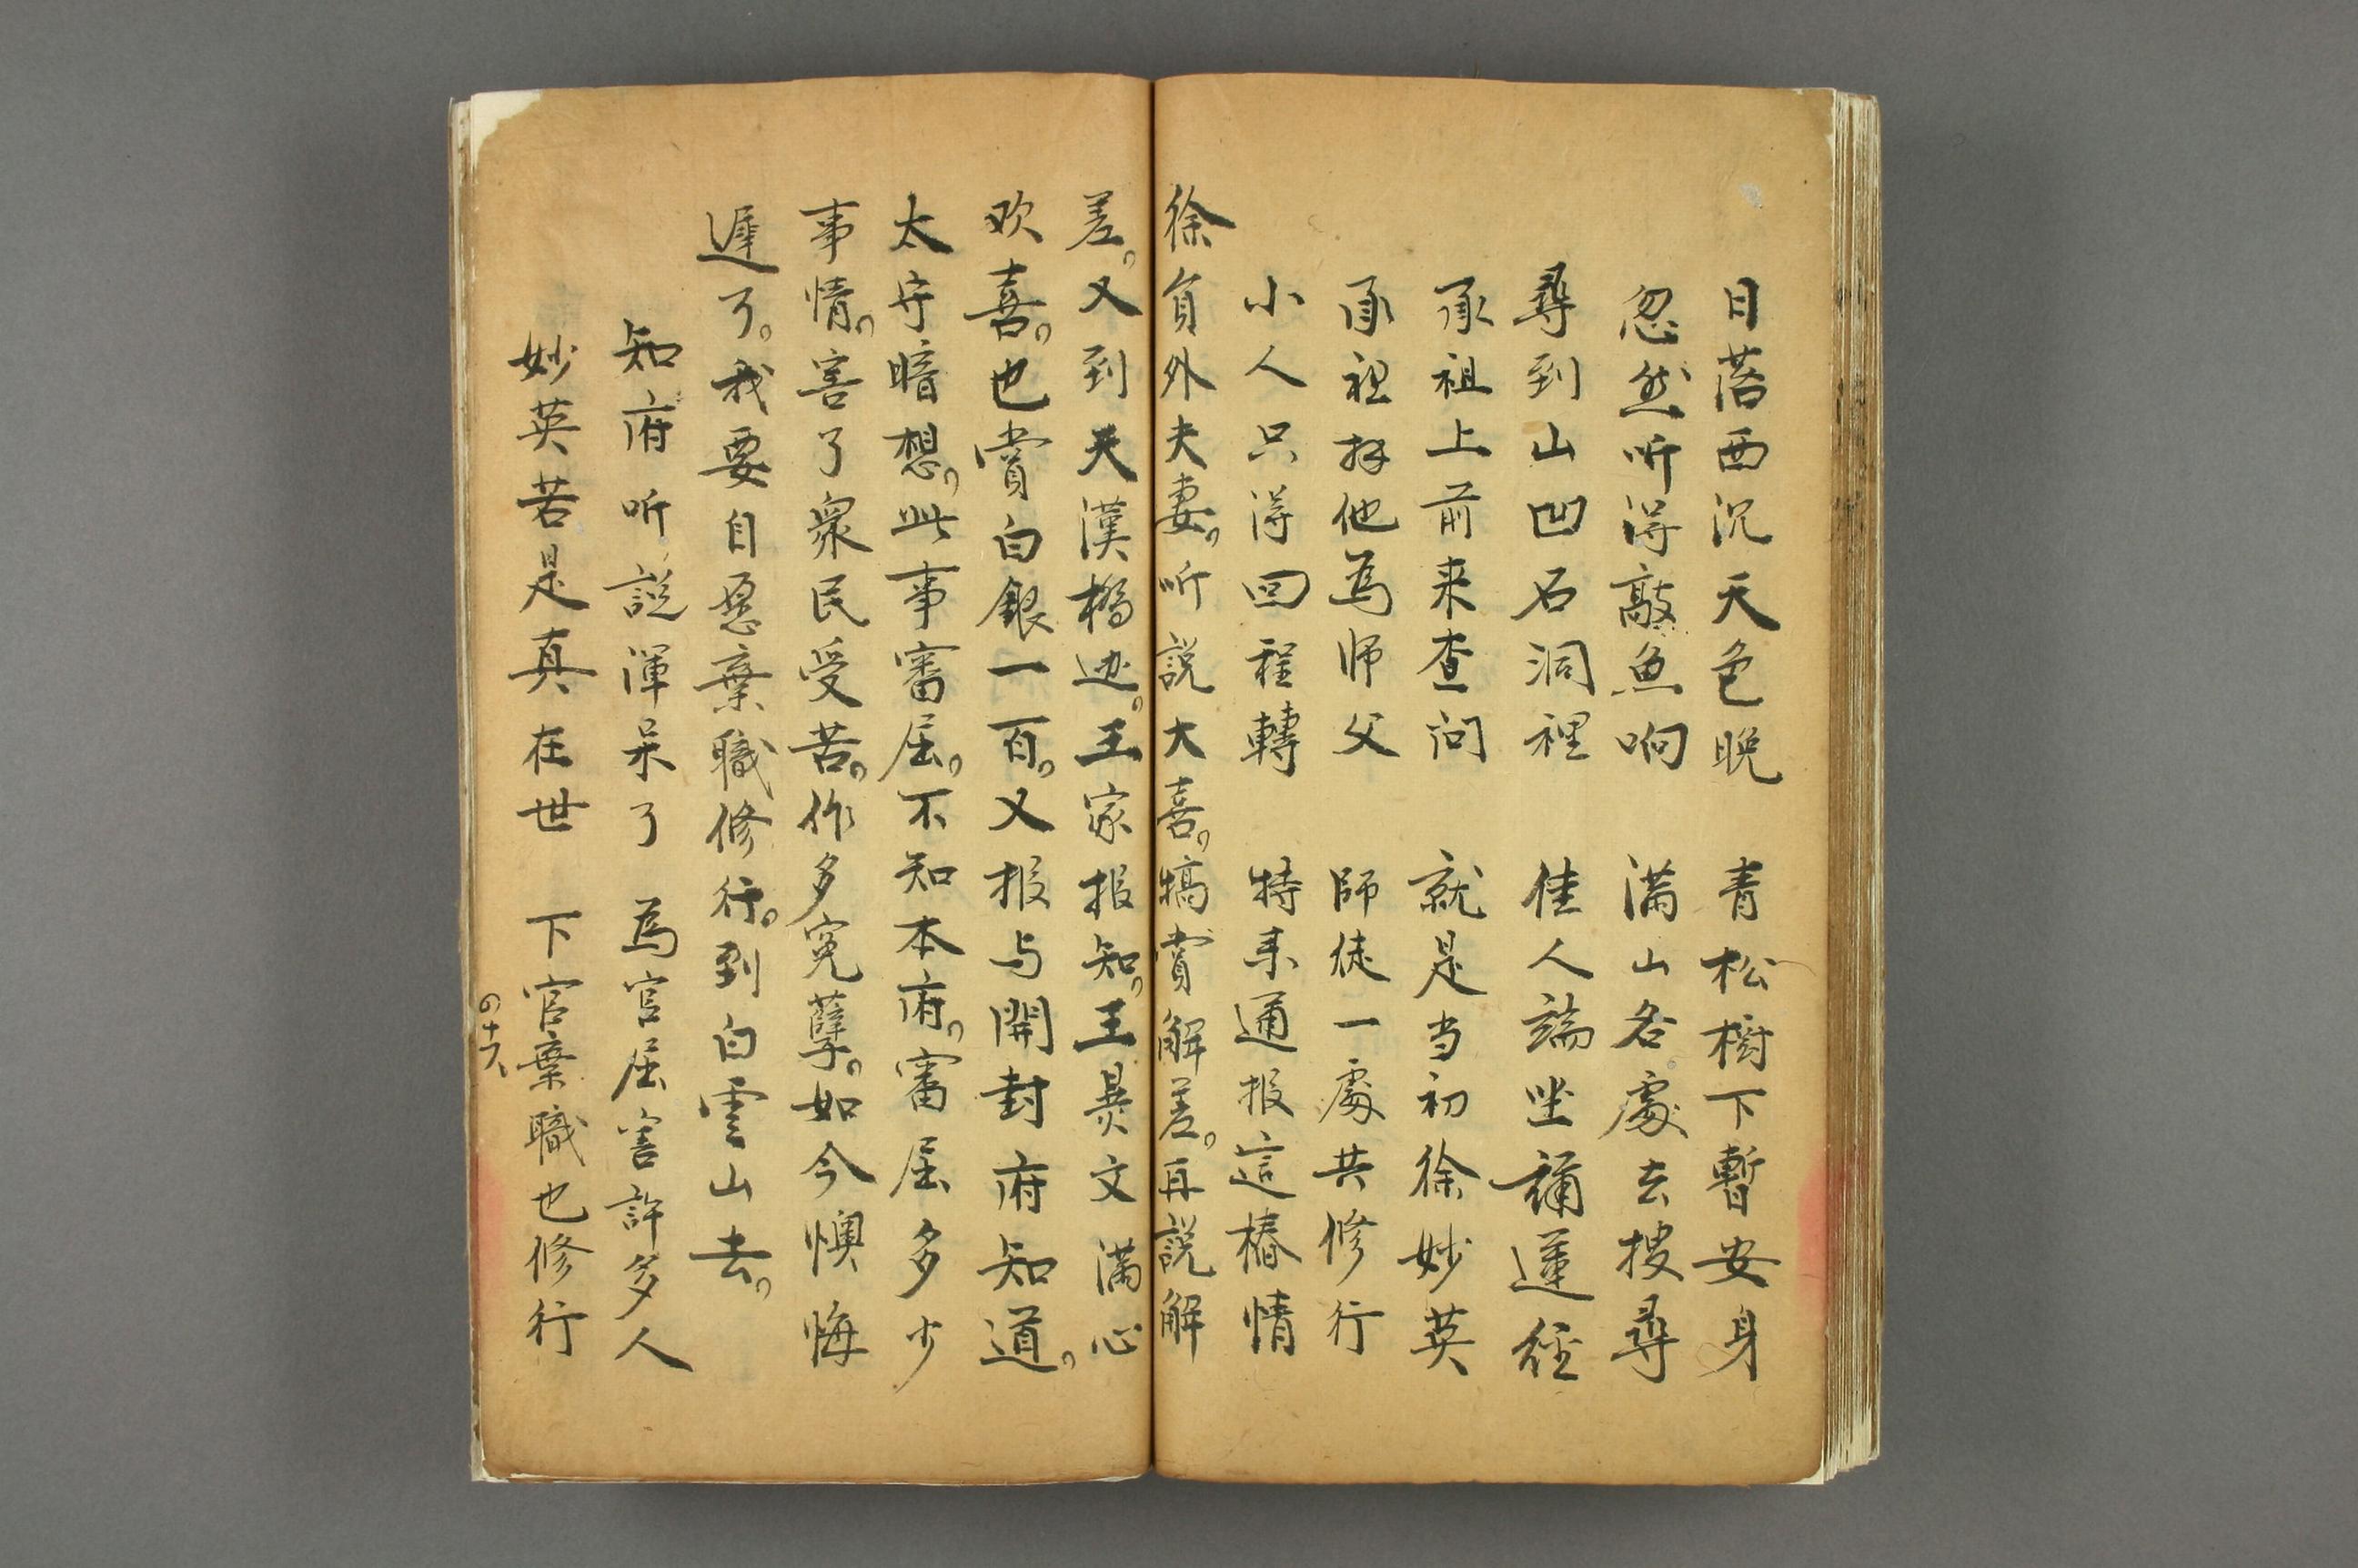 日落西沉天色晚　青松樹下暫安身
忽然听得敲魚响　滿山各處去搜尋
尋到山凹石洞裡　佳人端坐誦蓮經
承祖上前来查问　就是当初徐妙英
承祖拜他為师父　師徒一處共修行
小人只得回程轉　特来通报這樁情
徐員外夫妻。听説大喜。犒賞解差。再説解
差。又到天漢橋边。王家报知。王昊文滿心
欢喜。也賞白銀一百。又报与開封府知道。
太守暗想。此事審屈。不知本府。審屈多少
事情。害了衆民受苦。作多冤孽。如今懊悔
遲了。我要自愿棄職修行。到白雲山去。
知府听説渾呆了　為官屈害許多人
妙英若是真在世　下官棄職也修行